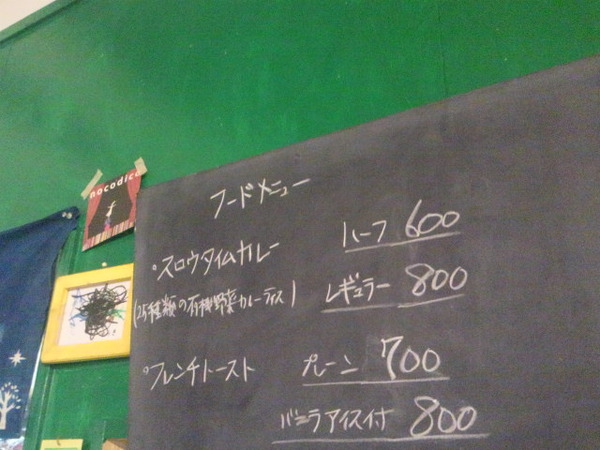 nocodica
フードメニュー
・スロウタイムカレー ハーフ 600
(25種類の有機野菜カレーライス) レギュラー 800
・フレンチトースト プレーン 700
バニラアイス付 800